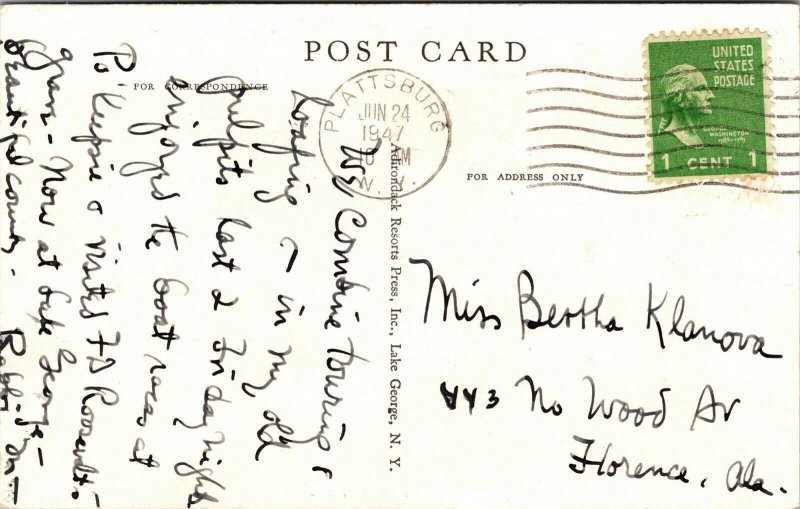 POST CARD
FOR CORRESPONDENCE
FOR ADDRESS ONLY
PLATTSBURG
JUN 24
1947
N.Y.
UNITED
STATES
POSTAGE
GEORGE
WASHINGTON
1789-1797
1 CENT 1
Adirondack Resorts Press, Inc., Lake George, N. Y.
Miss Bertha Klanova
443 No Wood Av
Florence, Ala.
We combine touring &
loafing – in my old
pulpits last 2 Friday nights
enjoyed the boat races at
Po'keepsie & visited FD Roosevelt's
grave - Now at Lake George -
beautiful country - Rabbi